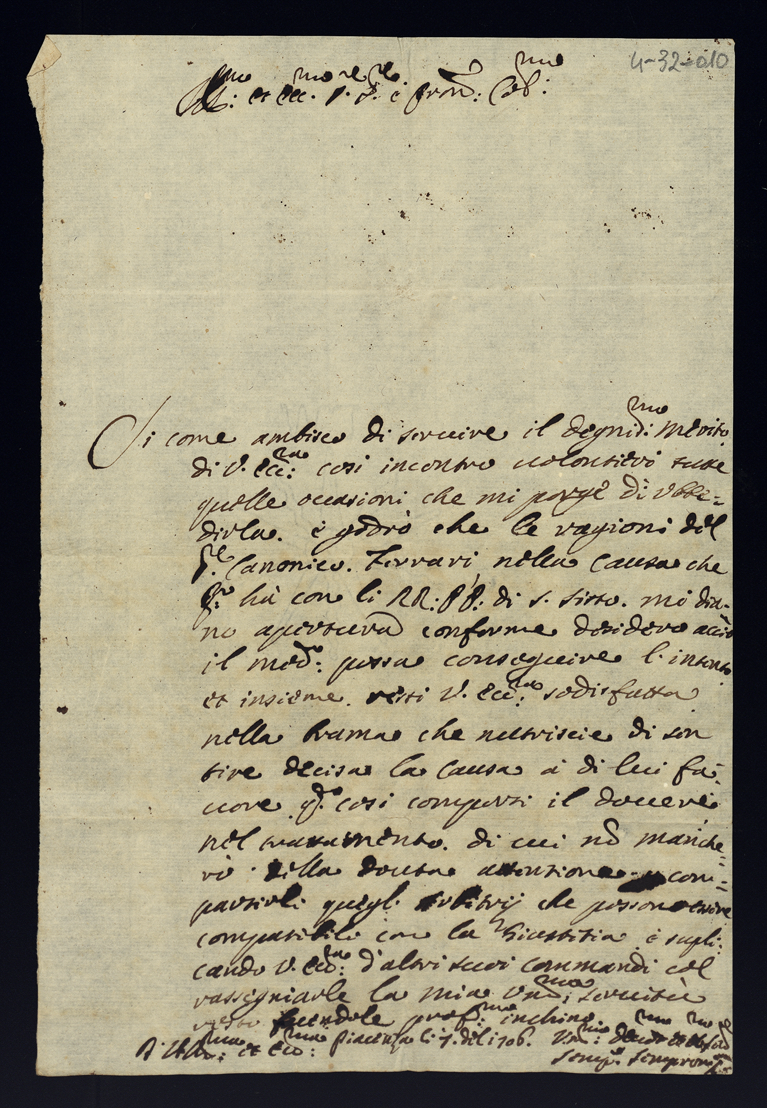 4-32-010
Ill:mo et Ecc.mo S.re P.re e Pron: Col:mo
Si come ambisco di servire il degniss:mo merito
di V. Ecc:za cosi incontro volontieri tutte
quelle occasioni che mi porge di obbe=
dirla. e godrò che le ragioni del
S.re Canonico. Ferrari nella Causa che
hà con li RR: PP: di S. Sisto. mi dia=
no apertura conforme desidero acciò
il med:o possa conseguire l'intento
et insieme. resti V. Ecc:za sodisfatta
nella brama che nutriscie di sen
tire decisa la Causa à di lui fa=
vore q.do cosi comporti il dovere
nel trattamento. di cui nò manche=
rò della dovuta attentione con=
partirli quegl' arbitrij che possono essere
compatibili con la Giustitia e supli=
cando V. Ecc:za d'altri suoi commandi col
rassegniarle la mia servitù
resto facendole prof:mo inchino.
D. V. Ill:ma et Ecc:ma Piacenza li 7. del 1706.